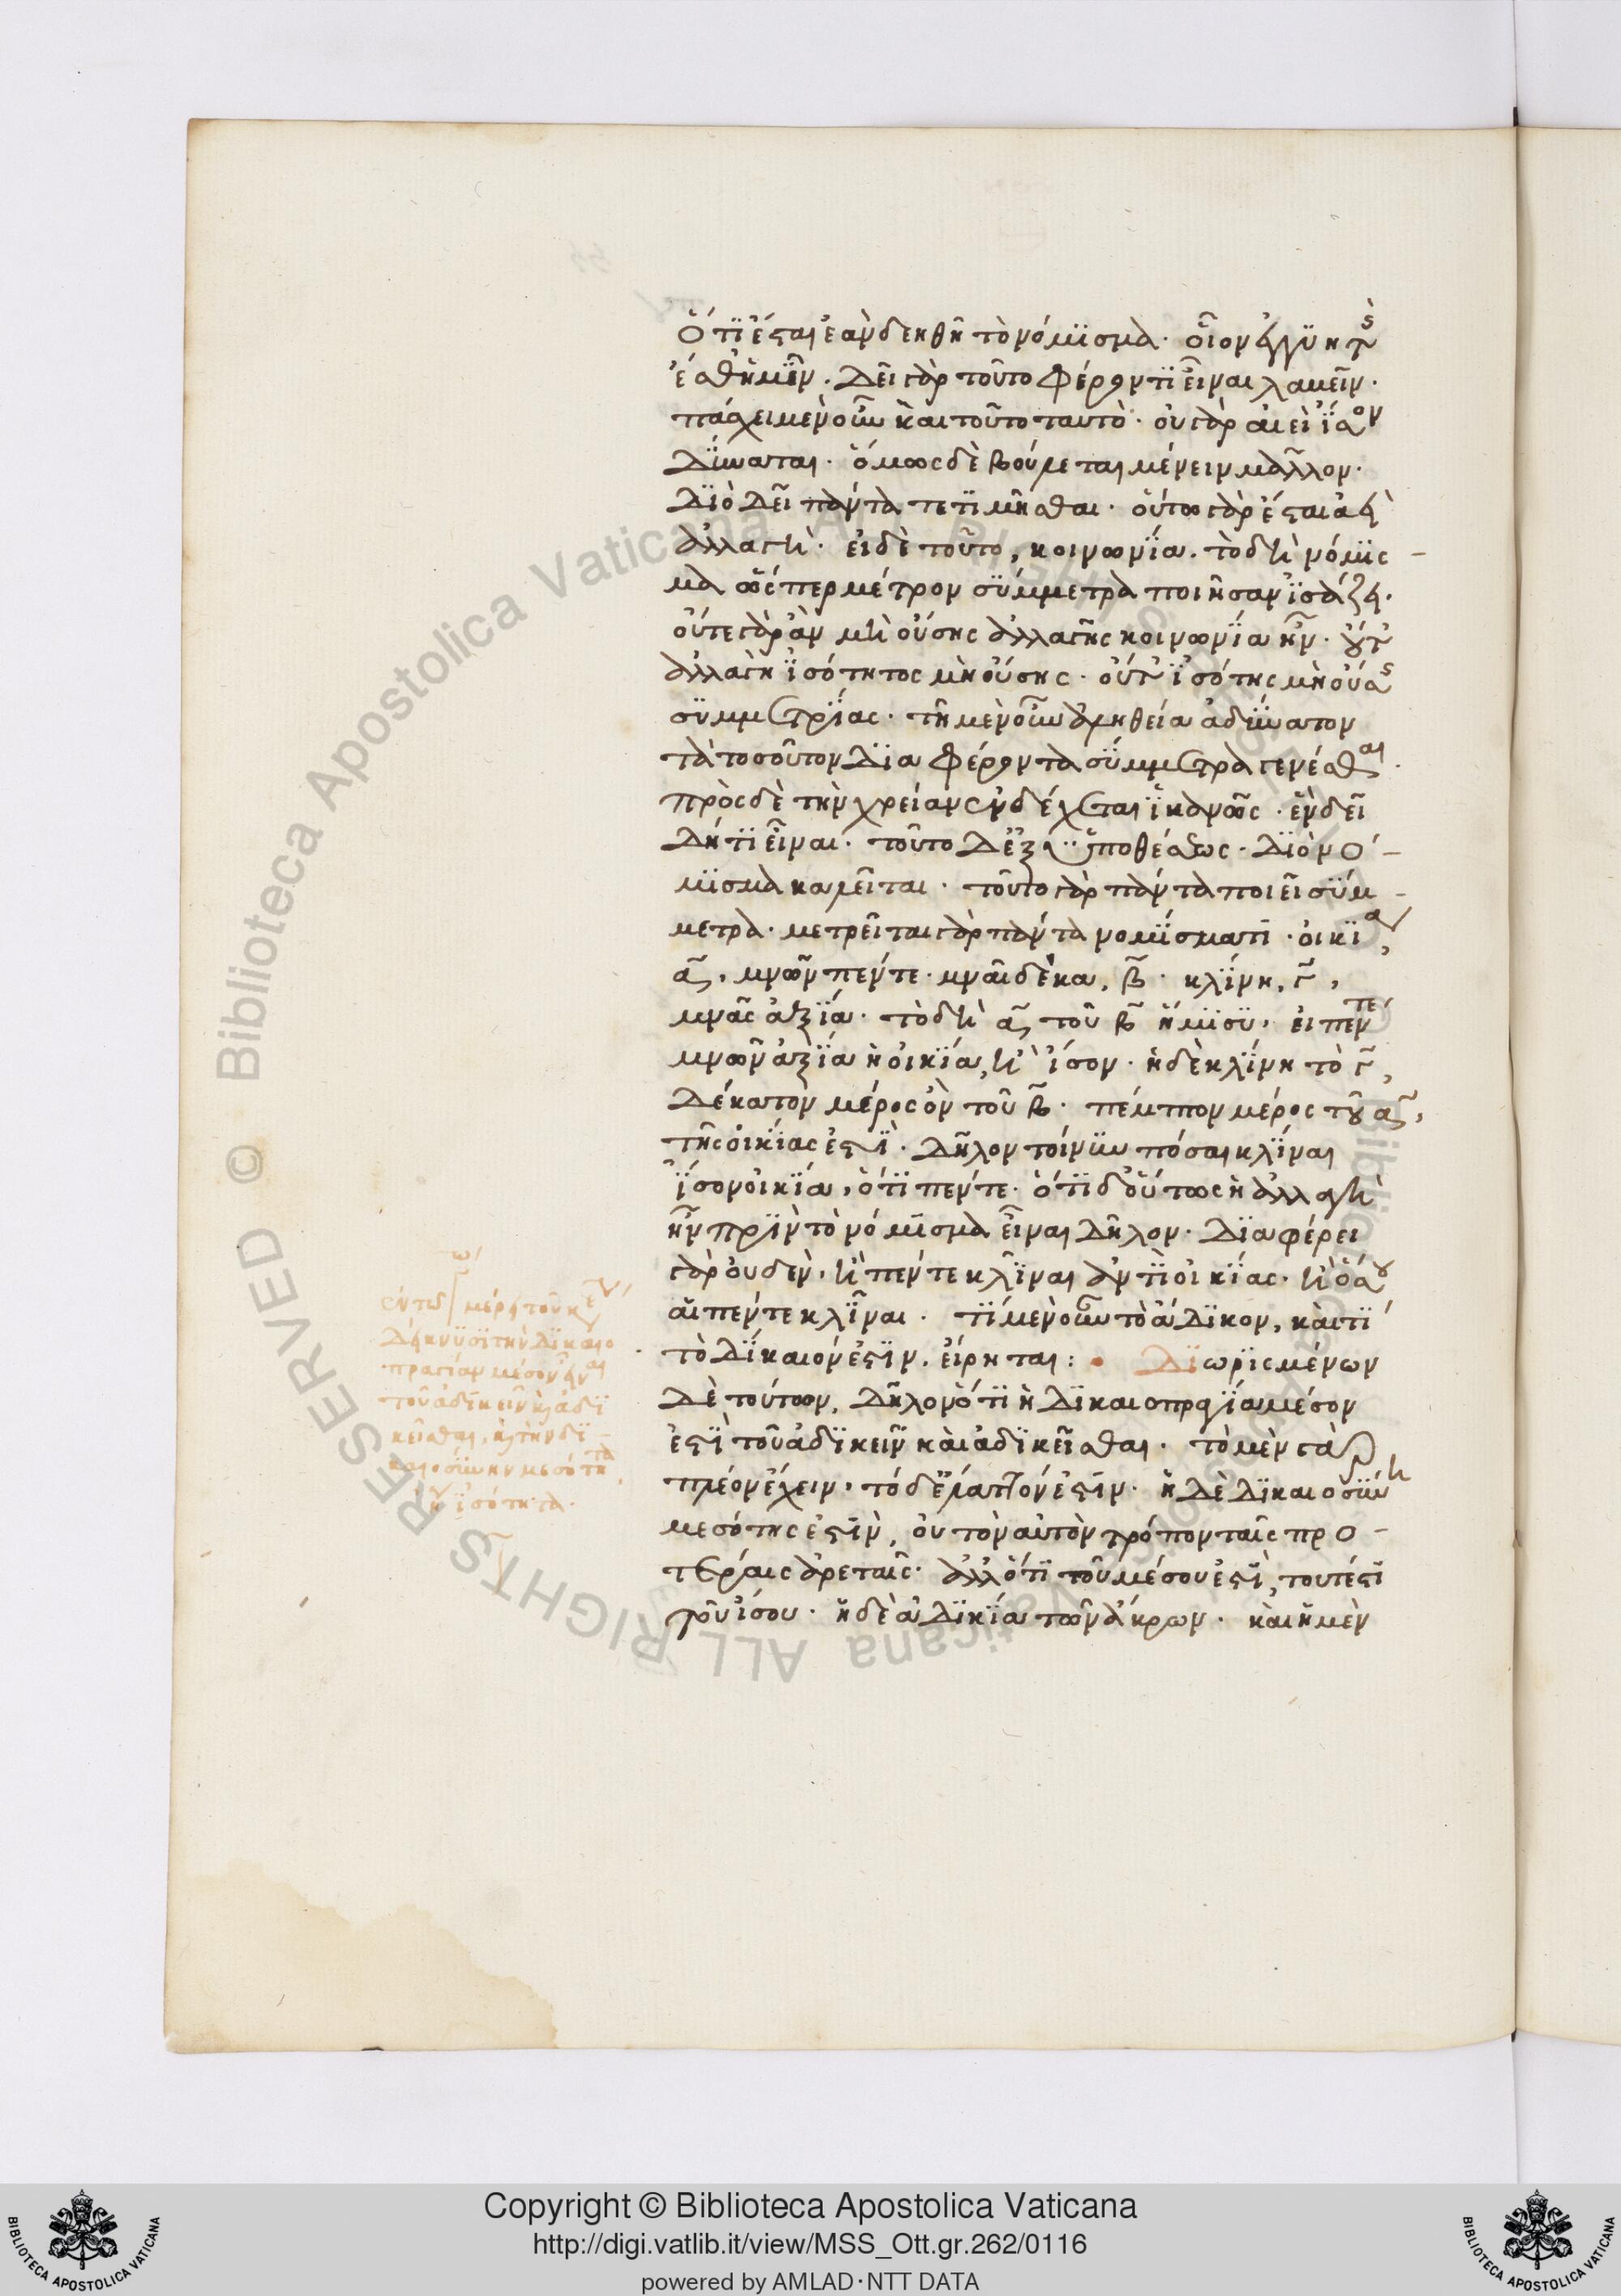 ὅτι ἔσται ἐὰν δεηθῇ τὸ νόμισμα. οἷον ἐγγυητὴς
ἐσθ ἡμῖν. δεῖ γὰρ τοῦτο φέροντι εἶναι λαβεῖν.
πάσχει μὲν οὖν καὶ τοῦτο ταυτὸ. οὐ γὰρ αἰεὶ ἴσον
δύναται. ὅμως δὲ βούλεται μένειν μᾶλλον.
διὸ δεῖ πάντα τετιμῆσθαι. οὕτω γὰρ ἔσται ἀεὶ
ἀλλαγή. εἰ δὲ τοῦτο, κοινωνία. τὸ δὴ νόμισ-
μα ὥσπερ μέτρον σύμμετρα ποιῆσαν ἰσάζει.
οὔτε γὰρ ἂν μὴ οὔσης ἀλλαγῆς κοινωνία ἦν. οὔτ
ἀλλαγὴ ἰσότητος μὴ οὔσης. οὔτ ἰσότης μὴ οὔσης
συμμετρίας. τῇ μὲν οὖν ἀληθεία ἀδύνατον
τὰ τοσοῦτον διαφέροντα σύμμετρα γενέσθαι.
πρὸς δὲ τὴν χρείαν ἐνδέχεται ἱκανῶς. ἓν δεῖ
δή τι εἶναι. τοῦτο δ ἐξ ὑποθέσεως. διὸ νό-
μισμα καλεῖται. τοῦτο γὰρ πάντα ποιεῖ σύμ-
μετρα. μετρεῖται γὰρ πάντα νομίσματι. οἰκία,
α, μνῶν πέντε. μναῖ δέκα, β. κλίνη, γ,
μνᾶς ἀξία. τὸ δὴ α, τοῦ β ἥμισυ, εἰ πέντε
μνῶν ἀξία ἡ οἰκία, ἢ ἴσον. ἡ δὲ κλίνη τὸ γ,
δέκατον μέρος ὂν τοῦ β. πέμπτον μέρος τοῦ α,
τῆς οἰκίας ἐστὶ. δῆλον τοίνυν πόσαι κλῖναι
ἴσον οἰκία, ὅτι πέντε. ὅτι δ οὕτως ἡ ἀλλαγὴ
ἦν πρὶν τὸ νόμισμα εἶναι δῆλον. διαφέρει
γὰρ οὐδὲν, ἢ πέντε κλῖναι ἀντὶ οἰκίας. ἢ ὅσου
αἱ πέντε κλῖναι. τί μὲν οὖν τὸ ἄδικον, καὶ τί
τὸ δίκαιόν ἐστιν, εἴρηται: διωρισμένων
δὲ τούτων, δῆλον ὅτι ἡ δικαιοπραγία μέσον
ἐστὶ τοῦ ἀδικεῖν καὶ ἀδικεῖσθαι. τὸ μὲν γὰρ
πλέον ἔχειν, τὸ δ ἔλαττόν ἐστιν. ἡ δὲ δικαιοσύνη
μεσότης ἐστὶν, οὐ τὸν αὐτὸν τρόπον ταῖς προ-
τέραις ἀρεταῖς. ἀλλ ὅτι τοῦ μέσου ἐστὶ, τουτέστι
τοῦ ἴσου. ἡ δὲ ἀδικία τῶν ἄκρων. καὶ ἡ μὲν
δείκνυσι τὴν δικαιο
πραγίαν μέσον εἶναι
τοῦ ἀδικεῖν καὶ ἀδι
κεῖσθαι, καὶ τὴν δι
καιοσύνην μεσότητα
ἰσότητα.
Copyright © Biblioteca Apostolica Vaticana
http://digi.vatlib.it/view/MSS_Ott.gr.262/0116
powered by AMLAD·NTT DATA
BIBLIOTECA APOSTOLICA VATICANA
BIBLIOTECA APOSTOLICA VATICANA
© Biblioteca Apostolica Vaticana ALL RIGHTS RESERVED